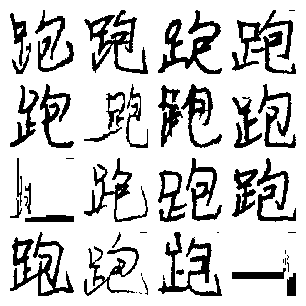 跑跑跑跑
跑跑跑跑
跑跑跑
跑跑跑